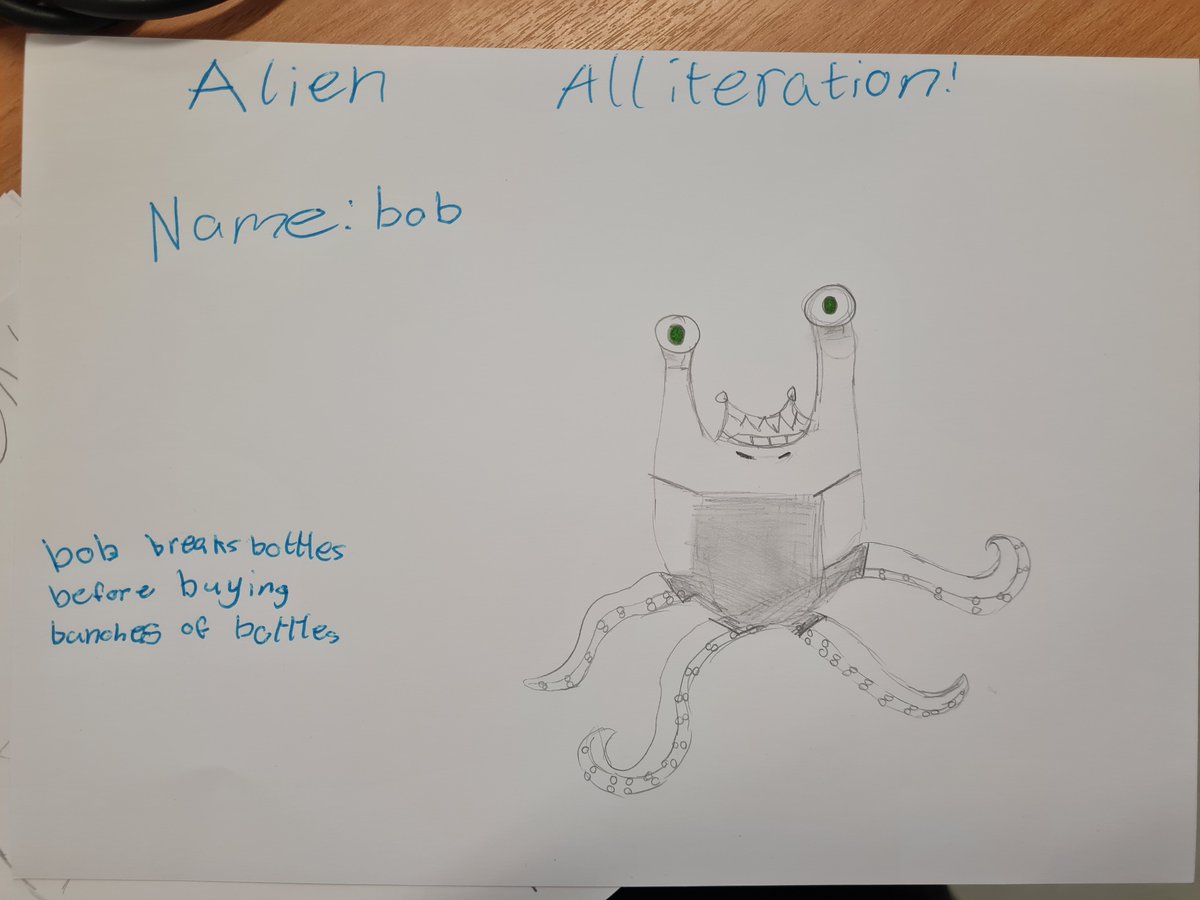 Alien Alliteration!
Name: bob
bob breaks bottles
before buying
bunches of bottles